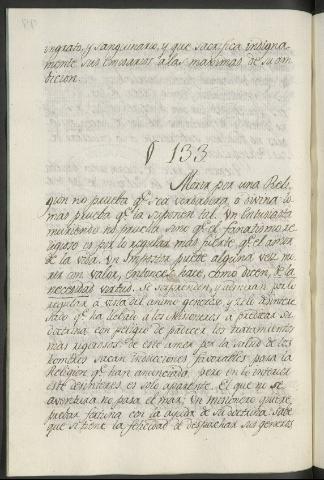 ingrato, y sanguinario, y que sacrifica indigna-
mente sus Emisarios a las maximas de su am-
bicion.
§ 133
Morir por una Reli-
gion no prueba qe. sea verdadera, o divina lo
mas prueba qe. la suponen tal. Un Entusiasta
muriendo no prueba sino qe. el fanatismo re-
ligioso es por lo regular mas fuerte qe. el amor
de la vida. Un Impostor puede alguna vez mo-
rir con valor, entonces hace, como dicen, de la
necesidad virtud. Se sorprenden, y admiran por lo
regular a vista del animo generoso y zelo desintere-
sado qe. ha llebado a los Misioneros a predicar su
Doctrina con peligro de padecer los tratamientos
mas rigorosos. de este amor por la salud de los
hombres sacan inducciones favorables para la
Religion qe. han anunciado, pero en lo interior
este desinteres es solo aparente. El que no se
aventura no pasa el mar; Un misionero quiere
probar fortuna con la ayuda de su doctrina: Sabe
que si tiene la felicidad de despachar sus generos